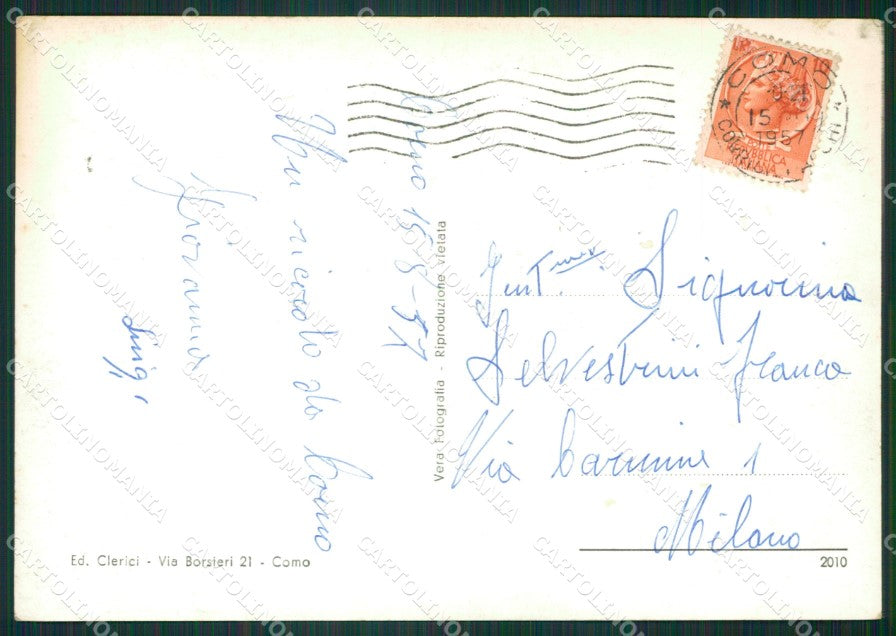 Como 15-8-57
Un ricordo da Como
Giovanna
Luigi
Vera Fotografia - Riproduzione vietata
Ed. Clerici - Via Borsieri 21 - Como
COMO
15
1957
Gent.
Signorina
Selvestrini Franca
Via Carmine 1
Milano
2010
CARTOLINOMANIA